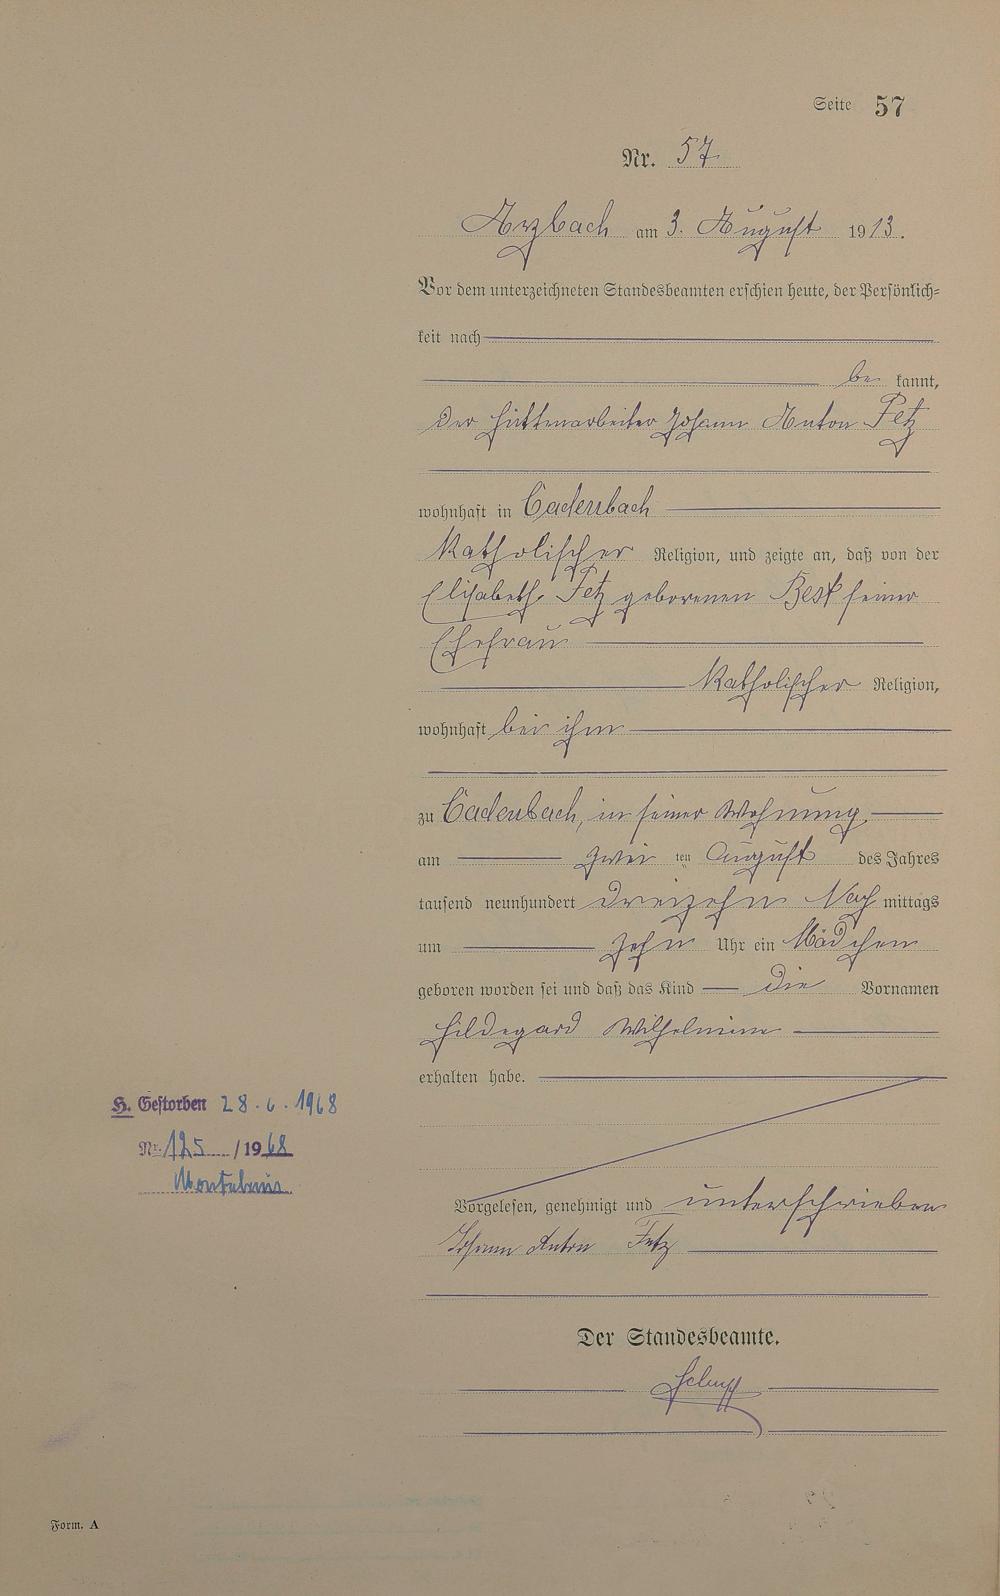 Seite 57
Nr. 57
Arzbach am 3. August 1913.
Vor dem unterzeichneten Standesbeamten erschien heute, der Persönlich=
keit nach
be kannt,
der Hüttenarbeiter Johann Anton Fetz
wohnhaft in Cadenbach
katholischer Religion, und zeigte an, daß von der
Elisabeth Fetz geborenen Best seiner
Ehefrau
katholischer Religion,
wohnhaft bei ihm
zu Cadenbach, in seiner Wohnung,
am zwei ten August des Jahres
tausend neunhundert dreizehn Nach mittags
um zehn Uhr ein Mädchen
geboren worden sei und daß das Kind die Vornamen
Hildegard Wilhelmine
erhalten habe.
H. Gestorben 28.6.1968
Nr. 125 / 1968
Montabaur
Vorgelesen, genehmigt und unterschrieben
Johann Anton Fetz
Der Standesbeamte.
Form. A